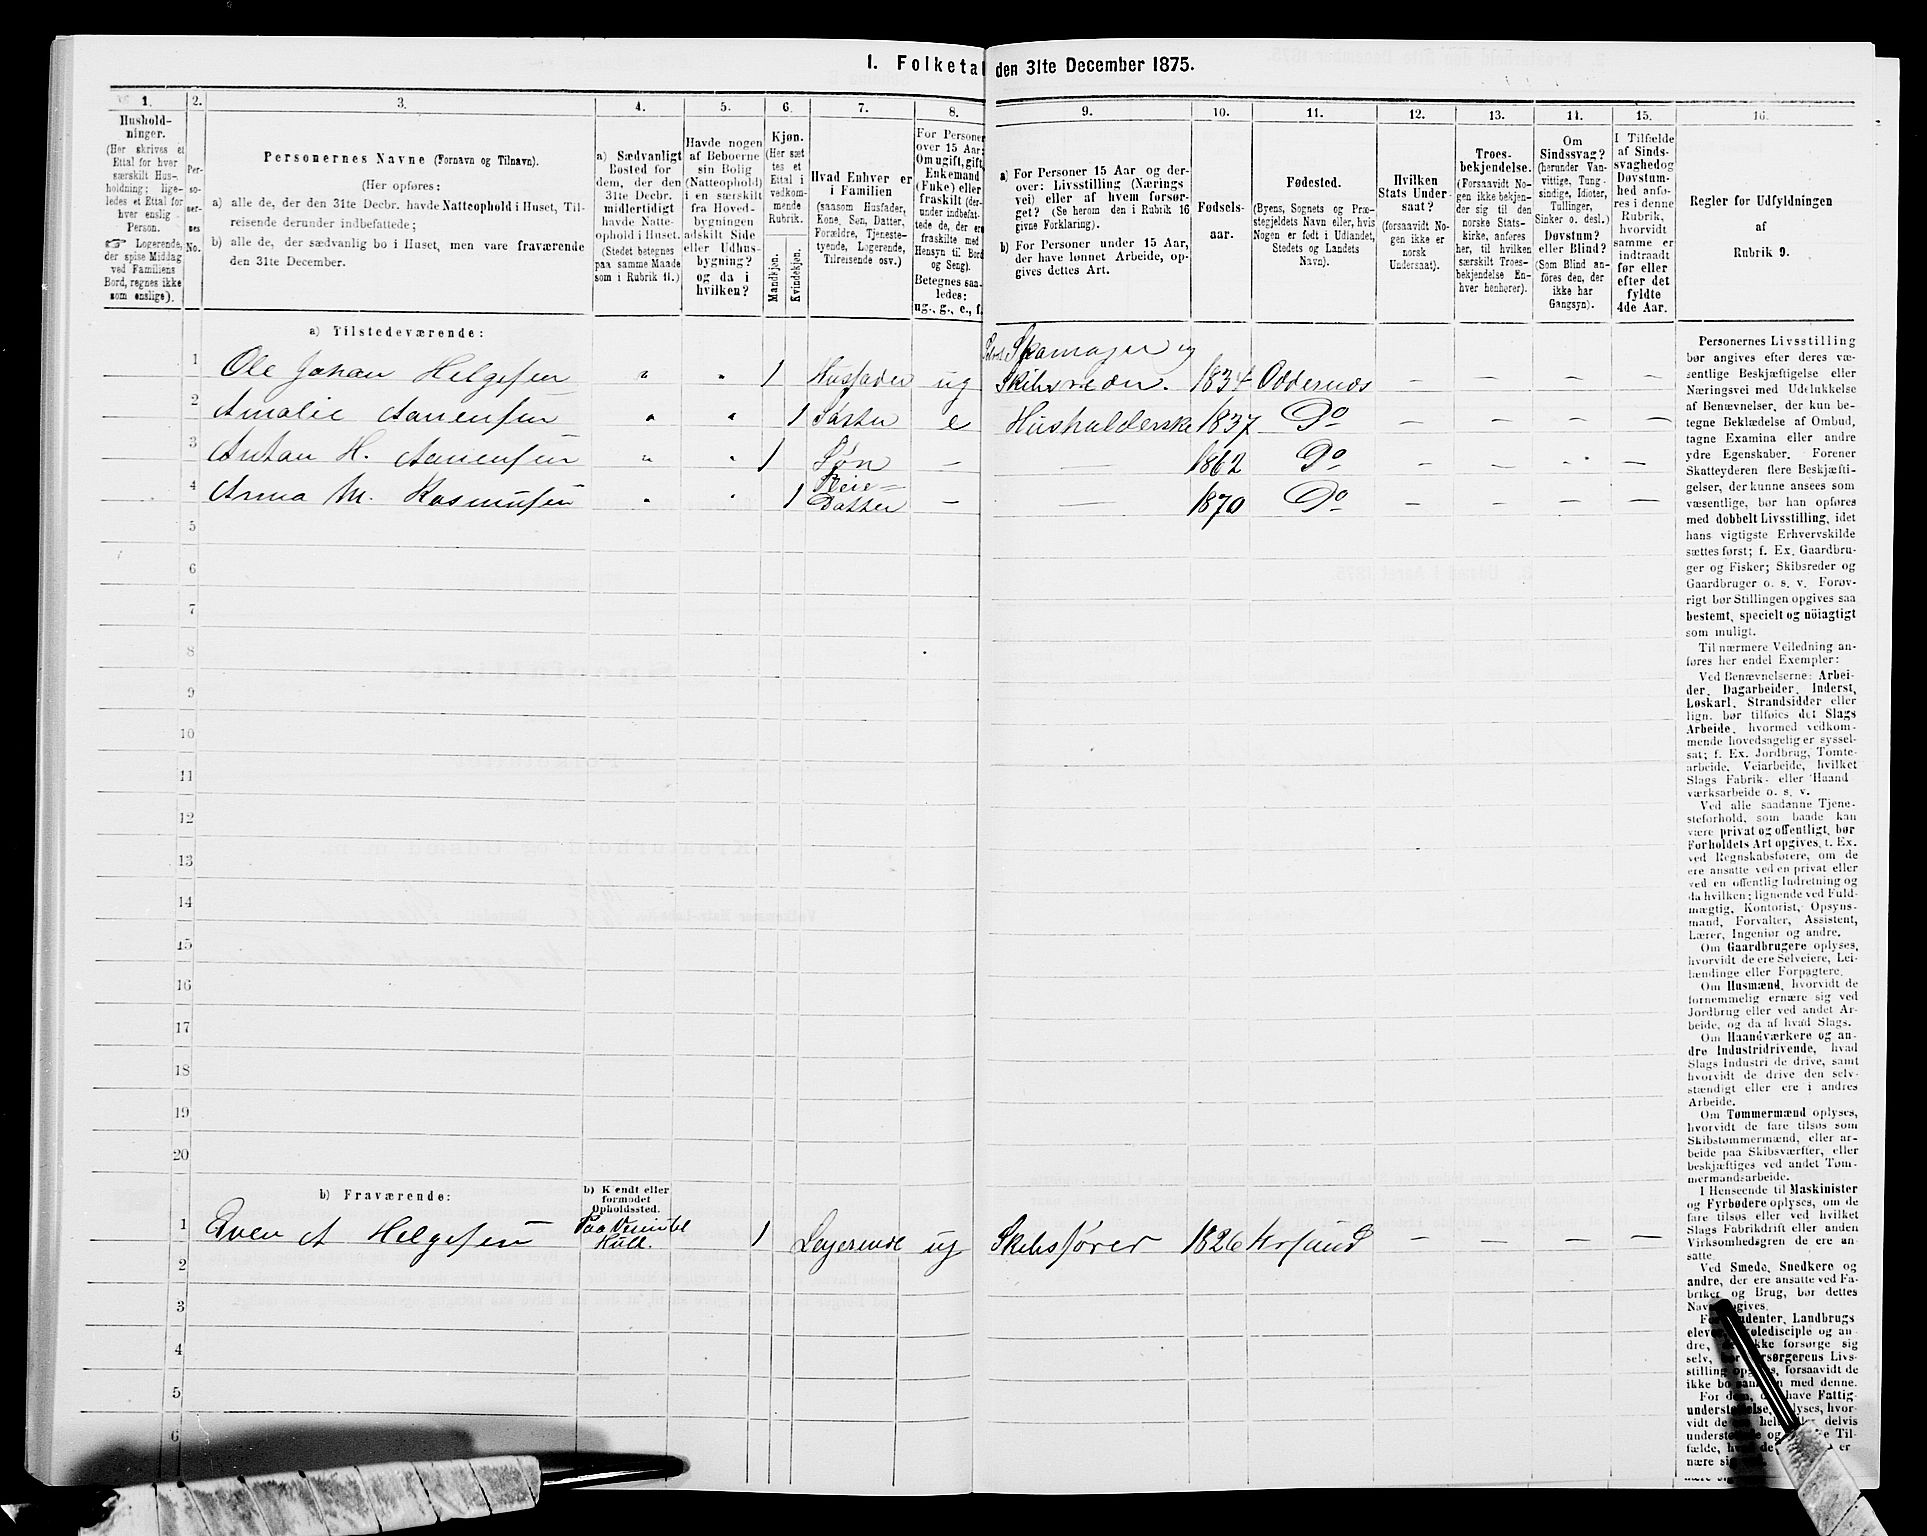 1. Folketal den 31te December 1875.
1.
Hushold-
ninger.
(Her skrives et
Ettal for hver
særskilt Hus-
holdning; lige-
ledes et Ettal for
hver enslig
Person.
☞ Logerende,
der spise Middag
ved Familiens
Bord, regnes ikke
som enslige).
2.
Per-
so-
ner-
nes
No.
3.
Personernes Navne (Fornavn og Tilnavn).
(Her opføres:
a) alle de, der den 31te Decbr. havde Natteophold i Huset, Til-
reisende derunder indbefattede;
b) alle de, der sædvanlig bo i Huset, men vare fraværende
den 31te December.
4.
a) Sædvanligt
Bosted for
dem, der den
31te Decbr.
midlertidigt
havde Natte-
ophold i Huset.
(Stedet betegnes
paa samme Maade
som i Rubrik 11.)
5.
Havde nogen
af Beboerne
sin Bolig
(Natteophold)
i en særskilt
fra Hoved-
bygningen
adskilt Side
eller Udhus-
bygning?
og da i
hvilken?
6.
Kjøn.
(Her sæt
tes et
Ettal i
vedkom-
mende
Rubrik.
Mandkjøn.
Kvindekjøn.
7.
Hvad Enhver er
i Familien
(saasom Husfader,
Kone, Søn, Datter,
Forældre, Tjeneste-
tyende, Logerende,
Tilreisende osv.)
8.
For Personer
over 15 Aar:
Om ugift, gift,
Enkemand
(Enke) eller
fraskilt (der-
under indbefat-
tede de, der ere
fraskilte med
Hensyn til Bord
og Seng).
Betegnes saa-
ledes:
ug., g., e., f.
9.
a) For Personer 15 Aar og der-
over: Livsstilling (Nærings
vei) eller af hvem forsør-
get? (Se herom den i Rubrik 16
givne Forklaring).
b) For Personer under 15 Aar,
der have lønnet Arbeide, op-
gives dettes Art.
10.
Fødsels-
aar.
11.
Fødested.
(Byens, Sognets og Præ-
stegjeldets Navn eller, hvis
Nogen er født i Udlandet,
Stedets og Landets
Navn).
12.
Hvilken
Stats Under-
saat?
(forsaavidt No-
gen ikke er
norsk
Undersaat).
13.
Troes-
bekjendelse.
(Forsaavidt No-
gen ikke bekjen-
der sig til den
norske Stats-
kirke, anføres
her, til hvilken
særskilt Troes-
bekjendelse En-
hver henhører).
14.
Om
Sindssvag?
(herunder Van-
vittige, Tung-
sindige, Idioter,
Tullinger,
Sinker o. desl.)
Døvstum?
eller Blind?
(Som Blind an-
føres den, der
ikke har
Gangsyn).
15.
I Tilfælde
af Sinds-
svaghed og
Døvstum-
hed anfø-
res i denne
Rubrik,
hvorvidt
samme er
indtraadt
før eller
efter det
fyldte
4de Aar.
16.
Regler for Udfyldningen
af
Rubrik 9.
a) Tilstedeværende:
1 Ole Johan Helgesen " " 1 Husfader ug Skomager og Skibsreder. 1834 Oddernæs — — — —
2 Amalie Aanensen " " 1 Søster e Husholderske 1837 Do — — — —
3 Anton H. Aanensen " " 1 Søn — — 1862 Do — — — —
4 Anna M. Rasmusen " " 1 Pleie= Datter — — 1870 Do — — — —
5
6
7
8
9
10
11
12
13
14
15
16
17
18
19
20
b) Fraværende:
b) Kjendt eller
formodet
Opholdssted.
1 Even A Helgesen Paa 1 Logerende ug Skibsfører 1826 Krsand — — — —
2
3
4
5
6
Personernes Livsstilling
bør angives efter deres væ-
sentlige Beskjæftigelse eller
Næringsvei med Udelukkelse
af Benævnelser, der kun be-
tegne Beklædelse af Ombud,
tagne Examina eller andre
ydre Egenskaber. Forener
Skatteyderen flere Beskjæfti-
gelser, der kunne ansees som
væsentlige, bør han opføres
med dobbelt Livsstilling, idet
hans vigtigste Erhvervskilde
sættes først; f. Ex. Gaardbru-
ger og Fisker; Skibsreder og
Gaardbruger o. s. v. Forøv-
rigt bør Stillingen opgives saa
bestemt, specielt og nöiagtigt
som muligt.
Til nærmere Veiledning an-
føres her endel Exempler:
Ved Benævnelserne: Arbei-
der, Dagarbeider, Inderst,
Løskarl, Strandsidder eller
lign. bør tilføies det Slags
Arbeide, hvormed vedkom-
mende hovedsagelig er syssel-
sat; f. Ex. Jordbrug, Tomte-
arbeide, Veiarbeide, hvilket
Slags Fabrik- eller Haand
værksarbeide o. s. v.
Ved alle saadanne Tjene-
steforhold, som baade kan
være privat og offentligt, bør
Forholdets Art opgives, f. Ex.
ved Regnskabsførere, om de
ere ansatte ved en privat eller
ved en offentlig Indretning og
da hvilken; lignende ved Fuld-
mægtig, Kontorist, Opsyns-
mand, Forvalter, Assistent,
Lærer, Ingeniør og andre.
Om Gaardbrugere oplyses,
hvorvidt de ere Selveiere, Lei-
lændinge eller Forpagtere.
Om Husmænd, hvorvidt de
fornemmelig ernære sig ved
Jordbrug eller ved andet Ar-
beide, og da af hvad Slags.
Om Haandværkere og an-
dre Industridrivende, hvad
Slags Industri de drive, samt
hvorvidt de drive den selv-
stændigt eller ere i andres
Arbeide.
Om Tømmermænd oplyses,
hvorvidt de fare tilsøs som
Skibstømmermænd, eller ar-
beide paa Skibsværfter, eller
beskjæftiges ved andet Tøm-
mermandsarbeide.
I Henseende til Maskinister
og Fyrbødere oplyses, om de
fare tilsøs eller ved hvilket
Slags Fabrikdrift eller anden
Virksomhedsgren de ere an-
satte.
Ved Smede, Snedkere og
andre, der ere ansatte ved Fa-
briker og Brug, bør dettes
Navn opgives.
For Studenter, Landbrugs
elever, Skoledisciple og an-
dre, der ikke forsørge sig
selv, bør Forsørgerens Livs-
stilling opgives, forsaavidt de
ikke bo sammen med denne.
For dem, der have Fattig-
understøttelse, oplyses, hvor-
vidt de ere helt eller delvis